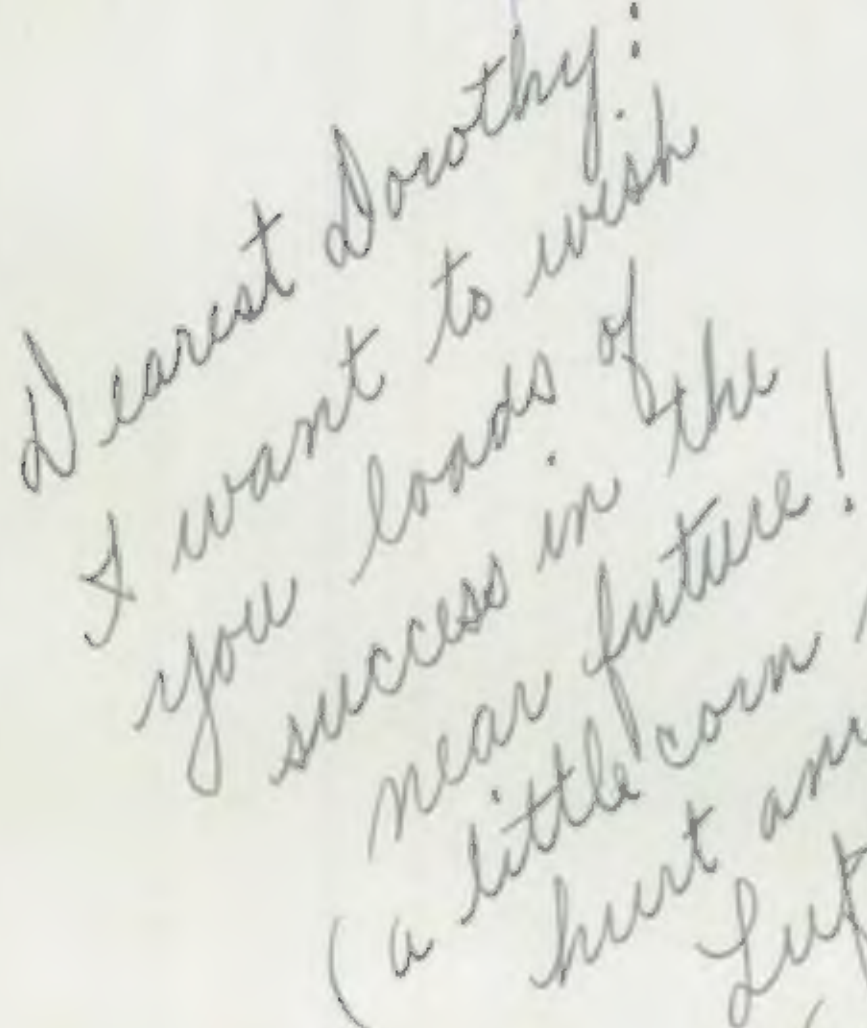 Dearest Dorothy:
I want to wish
you loads of
success in the
near future!
(a little corn
hurt